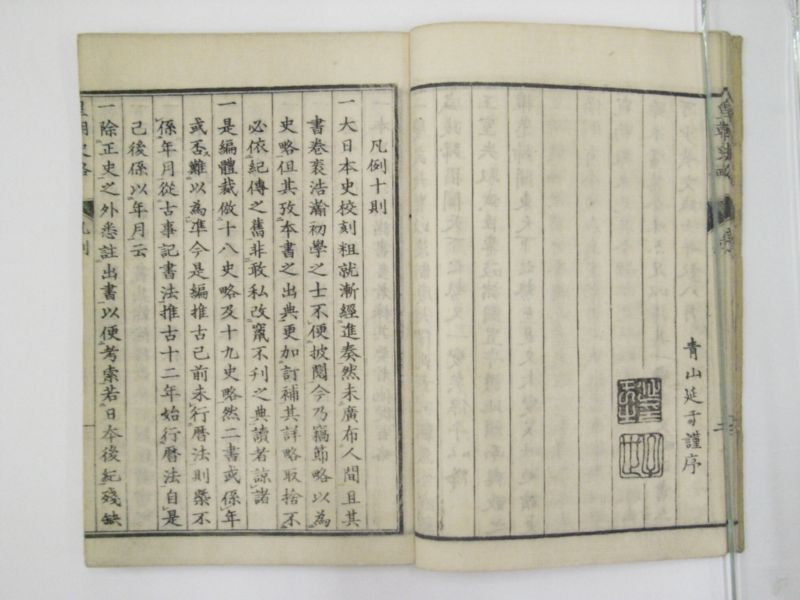 皇朝史略
序
青山延于謹序
凡例十則
一大日本史校刻粗就漸經進奏然未廣布人間且其
書卷袠浩瀚初學之士不便披閲今乃竊節略以為
史略但其攷本書之出典更加訂補其詳略取捨不
必依紀傳之舊非敢私改竄不刊之典讀者諒諸
一是編體裁倣十八史略及十九史略然二書或係年
或否難以為準今是編推古已前未行曆法則槩不
係年月從古事記書法推古十二年始行曆法自是
已後係以年月云
一除正史之外悉註出書以便考索若日本後紀殘缺
皇朝史略
凡例